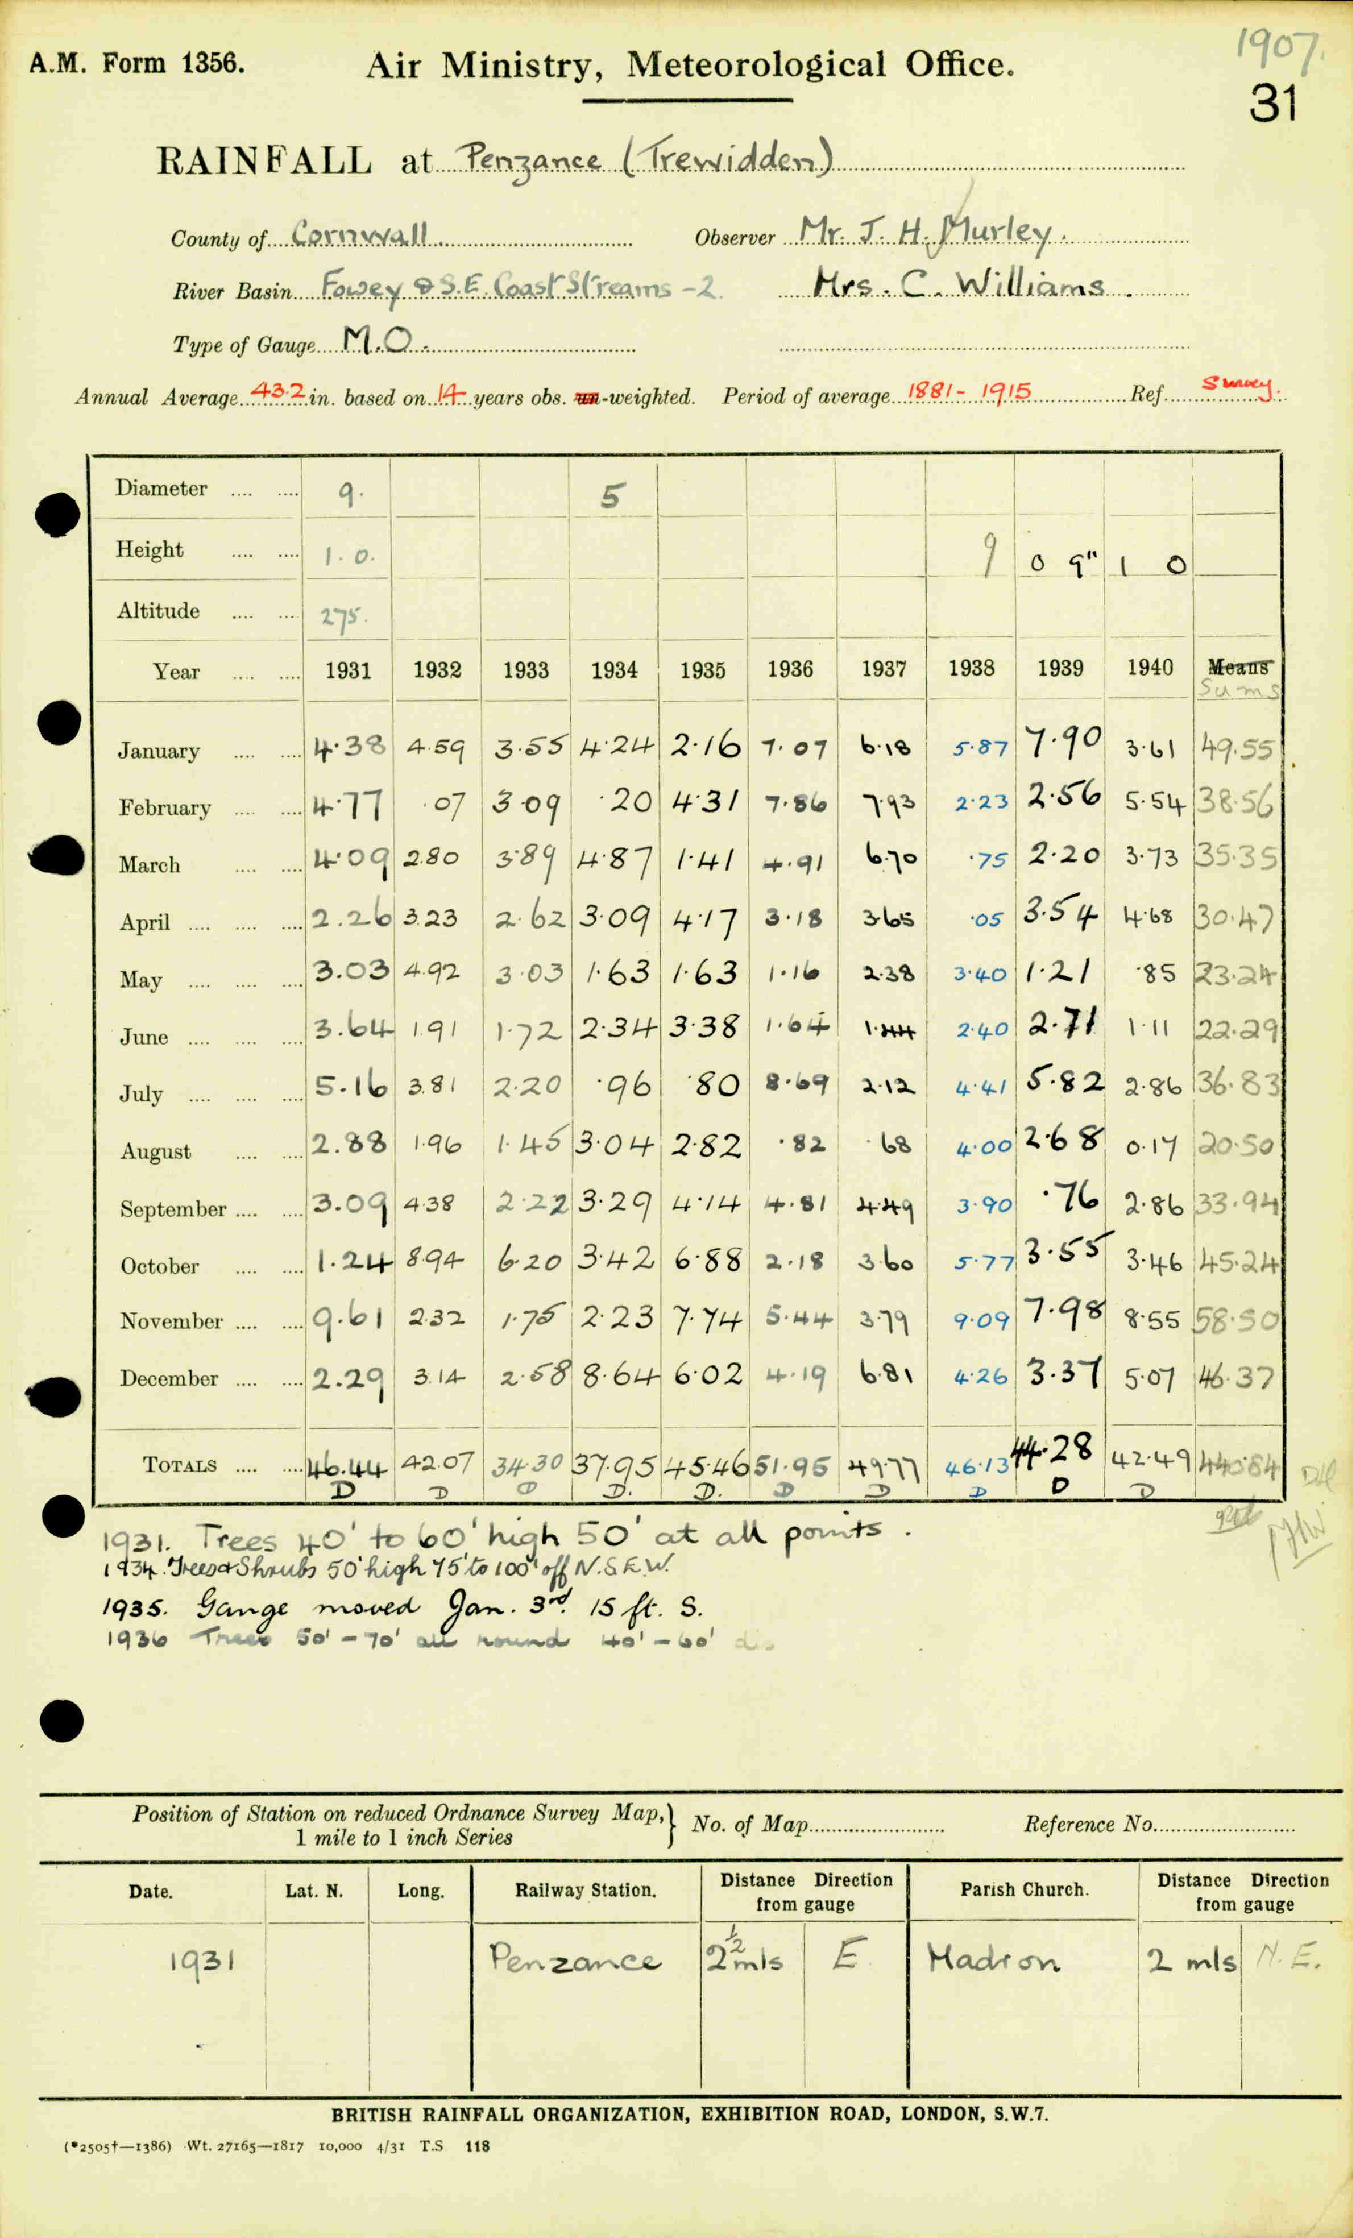 1907.
A.M. Form 1356. Air Ministry, Meteorological Office.
31
RAINFALL at Penzance (Trewidden)
County of Cornwall Observer Mr. J. H. Murley.
River Basin Fowey & S.E. Coast Streams -2. Mrs. C. Williams.
Type of Gauge M.O.
Annual Average 43.2 in. based on 14 years obs. un-weighted. Period of average 1881 - 1915 Ref. Survey.
Diameter 9. 5
Height 1. 0. 9 0 9" 1 0
Altitude 275.
Year 1931 1932 1933 1934 1935 1936 1937 1938 1939 1940 Means
Sums
January 4.38 4.59 3.55 4.24 2.16 7.07 6.18 5.87 7.90 3.61 49.55
February 4.77 .07 3.09 .20 4.31 7.86 7.93 2.23 2.56 5.54 38.56
March 4.09 2.80 3.89 4.87 1.41 4.91 6.70 .75 2.20 3.73 35.35
April 2.26 3.23 2.62 3.09 4.17 3.18 3.65 .05 3.54 4.68 30.47
May 3.03 4.92 3.03 1.63 1.63 1.16 2.38 3.40 1.21 .85 23.24
June 3.64 1.91 1.72 2.34 3.38 1.64 1.44 2.40 2.71 1.11 22.29
July 5.16 3.81 2.20 .96 .80 8.69 2.12 4.41 5.82 2.86 36.83
August 2.88 1.96 1.45 3.04 2.82 .82 .68 4.00 2.68 0.17 20.50
September 3.09 4.38 2.22 3.29 4.14 4.81 4.49 3.90 .76 2.86 33.94
October 1.24 8.94 6.20 3.42 6.88 2.18 3.60 5.77 3.55 3.46 45.24
November 9.61 2.32 1.75 2.23 7.74 5.44 3.79 9.09 7.98 8.55 58.50
December 2.29 3.14 2.58 8.64 6.02 4.19 6.81 4.26 3.37 5.07 46.37
TOTALS 46.44 42.07 34.30 37.95 45.46 51.95 49.77 46.13 44.28 42.49 440.84
D D D D. D. D D D D D
1931. Trees 40' to 60' high 50' at all points.
1934. Trees & Shrubs 50' high 75' to 100' off N.S.E.W.
1935. Gauge moved Jan. 3rd. 15 ft. S.
1936 Trees 50' - 70' all round 40' - 60' dis
Position of Station on reduced Ordnance Survey Map, No. of Map Reference No.
1 mile to 1 inch Series
Date. Lat. N. Long. Railway Station. Distance Direction from gauge Parish Church. Distance Direction from gauge
1931 Penzance 2½ mls E. Madron 2 mls N.E.
BRITISH RAINFALL ORGANIZATION, EXHIBITION ROAD, LONDON, S.W.7.
(*2505†—1386) Wt. 27165—1817 10,000 4/31 T.S 118